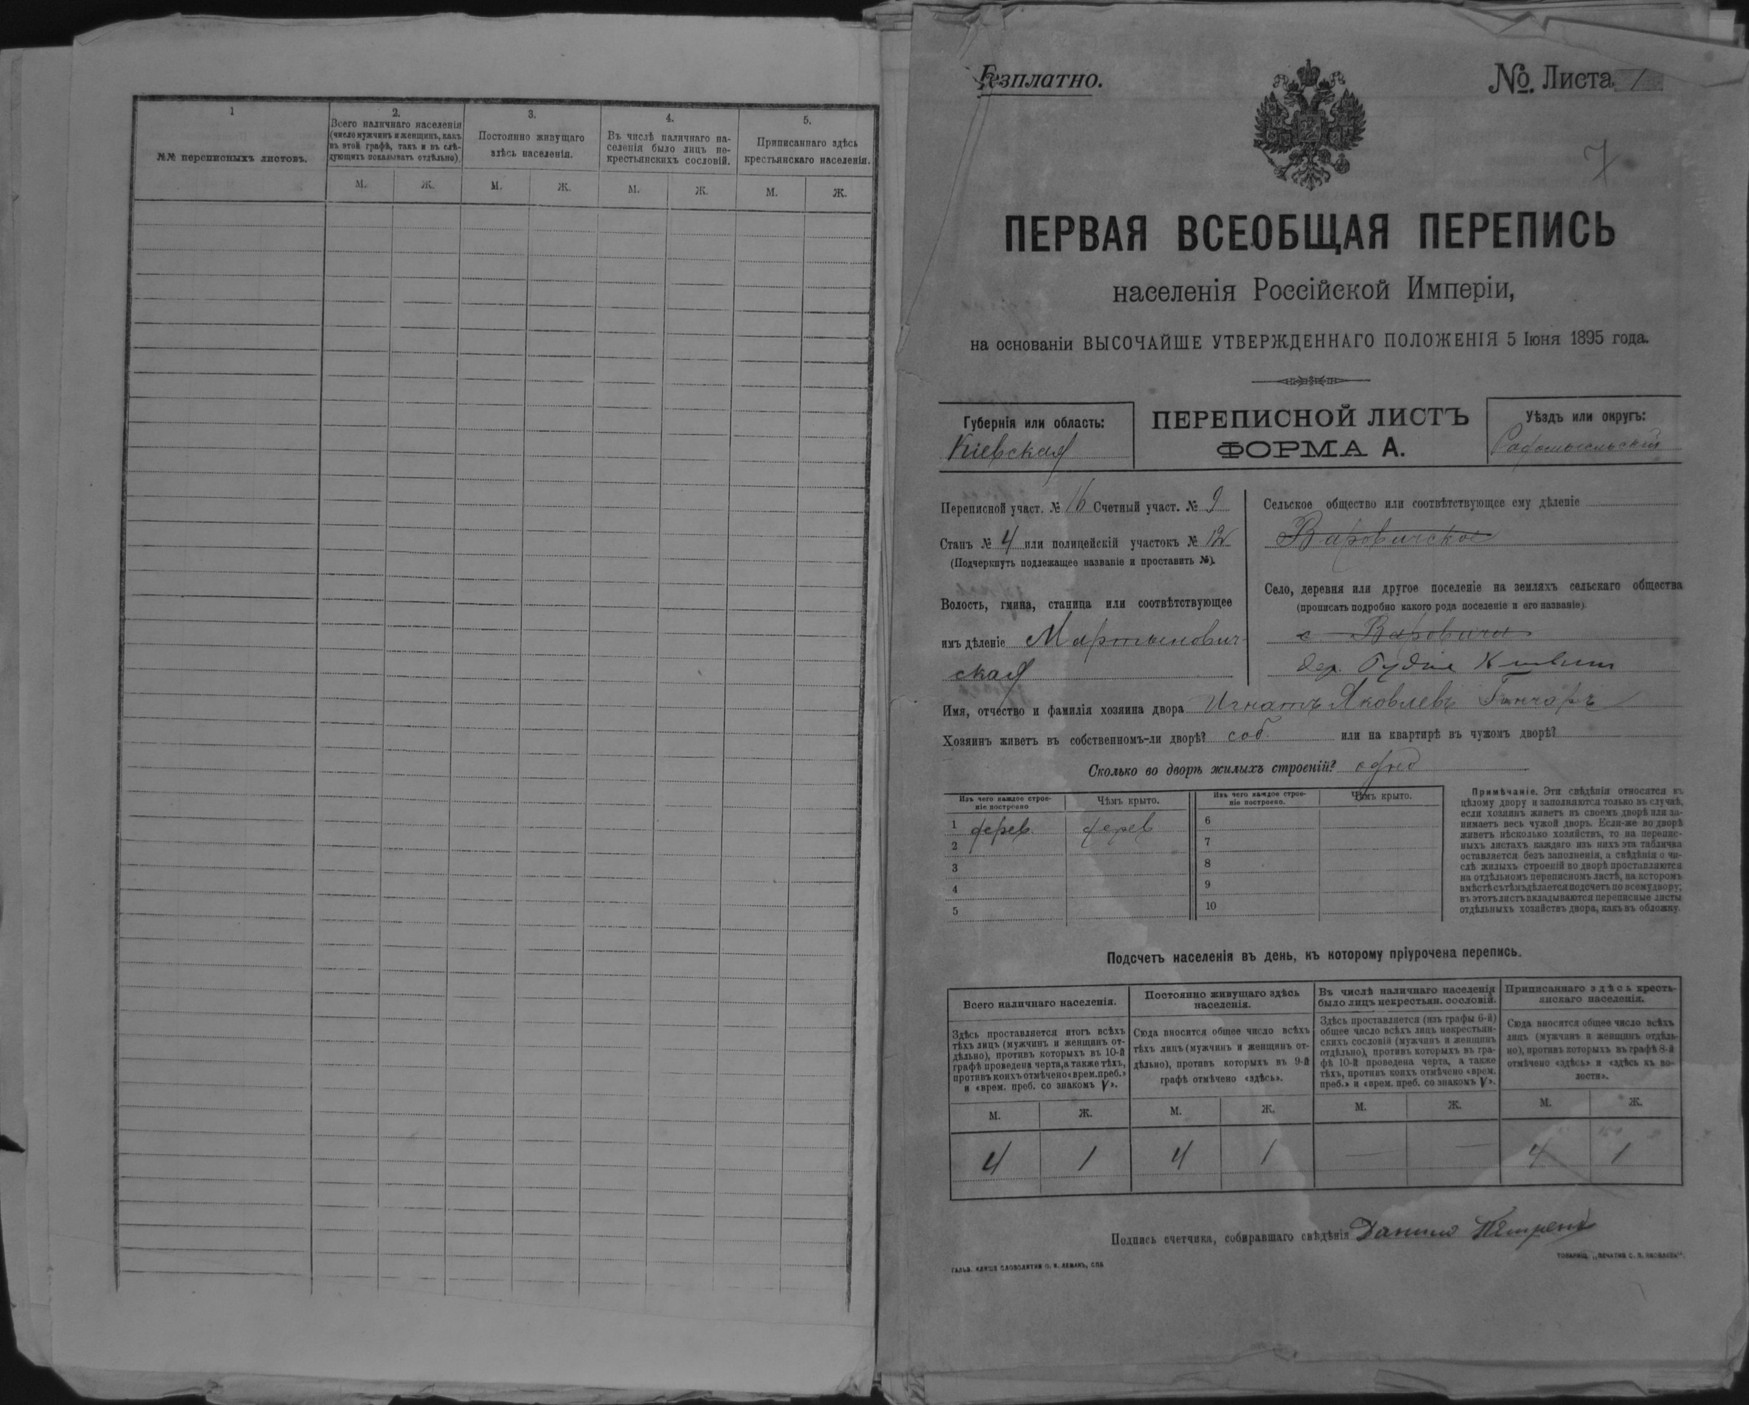 1
№№ переписныхъ листовъ.
2.
Всего наличнаго населенія
(число мужчинъ и женщинъ, какъ
въ этой графѣ, такъ и въ слѣ-
дующихъ показывать отдѣльно).
3.
Постоянно живущаго
здѣсь населенія.
4.
Въ числѣ наличнаго на-
селенія было лицъ не-
крестьянскихъ сословій.
5.
Приписаннаго здѣсь
крестьянскаго населенія.
М. Ж. М. Ж. М. Ж. М. Ж.
Безплатно.
№. Листа 1
7
ПЕРВАЯ ВСЕОБЩАЯ ПЕРЕПИСЬ
населенія Россійской Имперіи,
на основаніи ВЫСОЧАЙШЕ УТВЕРЖДЕННАГО ПОЛОЖЕНІЯ 5 Іюня 1895 года.
Губернія или область:
Кіевская
ПЕРЕПИСНОЙ ЛИСТЪ
ФОРМА А.
Уѣздъ или округъ:
Радомысльскій
Переписной участ. № 16 Счетный участ. № 9
Станъ № 4 или полицейскій участокъ №
(Подчеркнуть подлежащее названіе и проставить №).
Волость, гмина, станица или соотвѣтствующее
имъ дѣленіе Мартынович-
ская
Сельское общество или соотвѣтствующее ему дѣленіе
Варовичское
Село, деревня или другое поселеніе на земляхъ сельскаго общества
(прописать подробно какого рода поселеніе и его названіе)
с Варовичи
дер.
Имя, отчество и фамилія хозяина двора Игнатъ Яковлевъ Гончаръ
Хозяинъ живетъ въ собственномъ-ли дворѣ? соб. или на квартирѣ въ чужомъ дворѣ?
Сколько во дворѣ жилыхъ строеній? одно
Изъ чего каждое строе-
ніе построено
Чѣмъ крыто.
Изъ чего каждое строе-
ніе построено.
Чѣмъ крыто.
1 дерев. дерев
2
3
4
5
6
7
8
9
10
Примѣчаніе. Эти свѣдѣнія относятся къ
цѣлому двору и заполняются только въ случаѣ,
если хозяинъ живетъ въ своемъ дворѣ или за-
нимаетъ весь чужой дворъ. Если-же во дворѣ
живетъ нѣсколько хозяйствъ, то на перепис-
ныхъ листахъ каждаго изъ нихъ эта табличка
оставляется безъ заполненія, а свѣдѣнія о чи-
слѣ жилыхъ строеній во дворѣ проставляются
на отдѣльномъ переписномъ листѣ, на которомъ
вмѣстѣ съ тѣмъ дѣлается подсчетъ по всему двору;
въ этотъ листъ вкладываются переписные листы
отдѣльныхъ хозяйствъ двора, какъ въ обложку.
Подсчетъ населенія въ день, къ которому пріурочена перепись.
Всего наличнаго населенія.
Здѣсь проставляется итогъ всѣхъ
тѣхъ лицъ (мужчинъ и женщинъ от-
дѣльно), противъ которыхъ въ 10-й
графѣ проведена черта, а также тѣхъ,
противъ коихъ отмѣчено «врем. преб.»
и «врем. преб. со знакомъ V».
Постоянно живущаго здѣсь
населенія.
Сюда вносится общее число всѣхъ
тѣхъ лицъ (мужчинъ и женщинъ от-
дѣльно), противъ которыхъ въ 9-й
графѣ отмѣчено «здѣсь».
Въ числѣ наличнаго населенія
было лицъ некрестьян. сословій.
Здѣсь проставляется (изъ графы 6-й)
общее число всѣхъ лицъ некрестьян-
скихъ сословій (мужчинъ и женщинъ
отдѣльно), противъ которыхъ въ гра-
фѣ 10-й проведена черта, а также
тѣхъ, противъ коихъ отмѣчено «врем.
преб.» и «врем. преб. со знакомъ V».
Приписаннаго здѣсь кресть-
янскаго населенія.
Сюда вносится общее число всѣхъ
лицъ (мужчинъ и женщинъ отдѣль-
но), противъ которыхъ въ графѣ 8-й
отмѣчено «здѣсь» и «здѣсь къ во-
лости».
М. Ж. М. Ж. М. Ж. М. Ж.
4 1 4 1 — — 4 1
Подпись счетчика, собиравшаго свѣдѣнія Данило